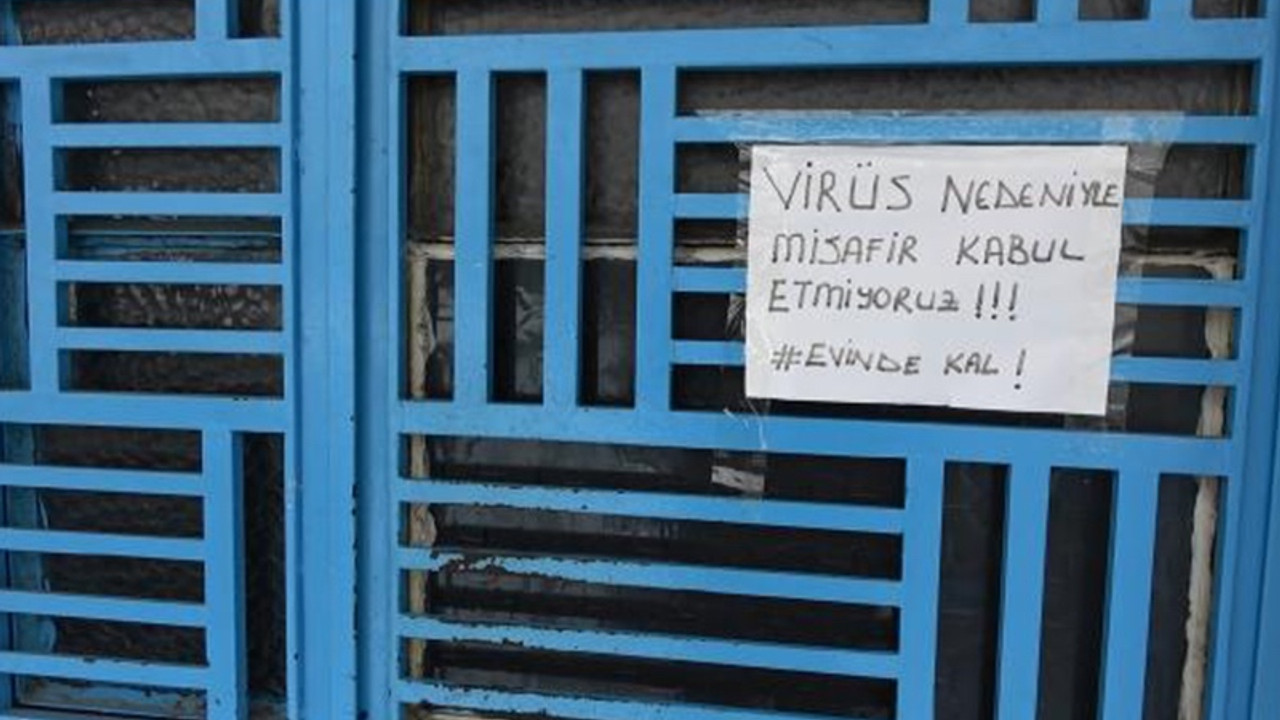 VİRÜS NEDENİYLE
MİSAFİR KABUL
ETMİYORUZ !!!
#EVİNDE KAL !